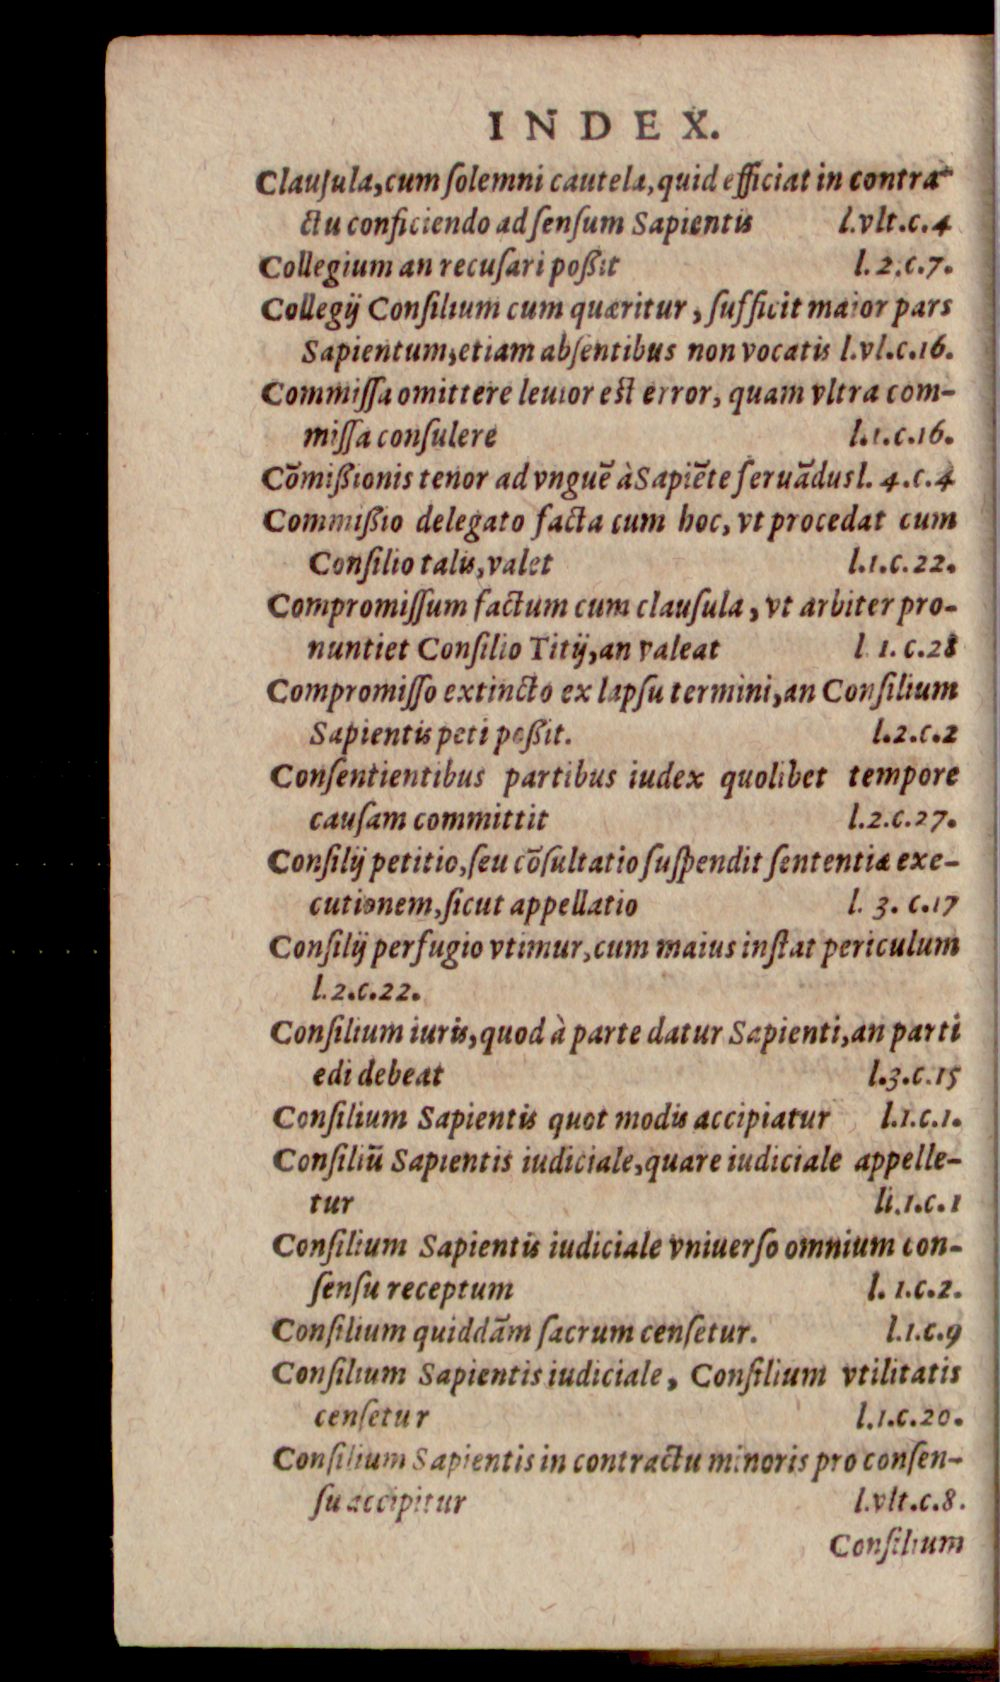 INDEX.
Clauſula, cum ſolemni cautela, quid efficiat in contra-
ctu conficiendo ad ſenſum Sapientis l.vlt.c.4
Collegium an recuſari poßit l.2.c.7.
Collegij Conſilium cum quæritur, ſufficit maior pars
Sapientum, etiam abſentibus non vocatis l.vl.c.16.
Commiſſa omittere leuior eſt error, quam vltra com-
miſſa conſulere l.1.c.16.
Cõmißionis tenor ad vnguẽ à Sapiẽte ſeruãdus l. 4.c.4
Commißio delegato facta cum hoc, vt procedat cum
Conſilio talis, valet l.1.c.22.
Compromiſſum factum cum clauſula, vt arbiter pro-
nuntiet Conſilio Titij, an valeat l 1. c.28
Compromiſſo extincto ex lapſu termini, an Conſilium
Sapientis peti poßit. l.2.c.2
Conſentientibus partibus iudex quolibet tempore
cauſam committit l.2.c.27.
Conſilij petitio, ſeu cõſultatio ſuſpendit ſententiæ exe-
cutionem, ſicut appellatio l. 3. c.17
Conſilij perfugio vtimur, cum maius inſtat periculum
l.2.c.22.
Conſilium iuris, quod à parte datur Sapienti, an parti
edi debeat l.3.c.15
Conſilium Sapientis quot modis accipiatur l.1.c.1.
Conſiliũ Sapientis iudiciale, quare iudiciale appelle-
tur li.1.c.1
Conſilium Sapientis iudiciale vniuerſo omnium con-
ſenſu receptum l. 1.c.2.
Conſilium quiddãm ſacrum cenſetur. l.1.c.9
Conſilium Sapientis iudiciale, Conſilium vtilitatis
cenſetur l.1.c.20.
Conſilium Sapientis in contractu minoris pro conſen-
ſu accipitur l.vlt.c.8.
Conſilium